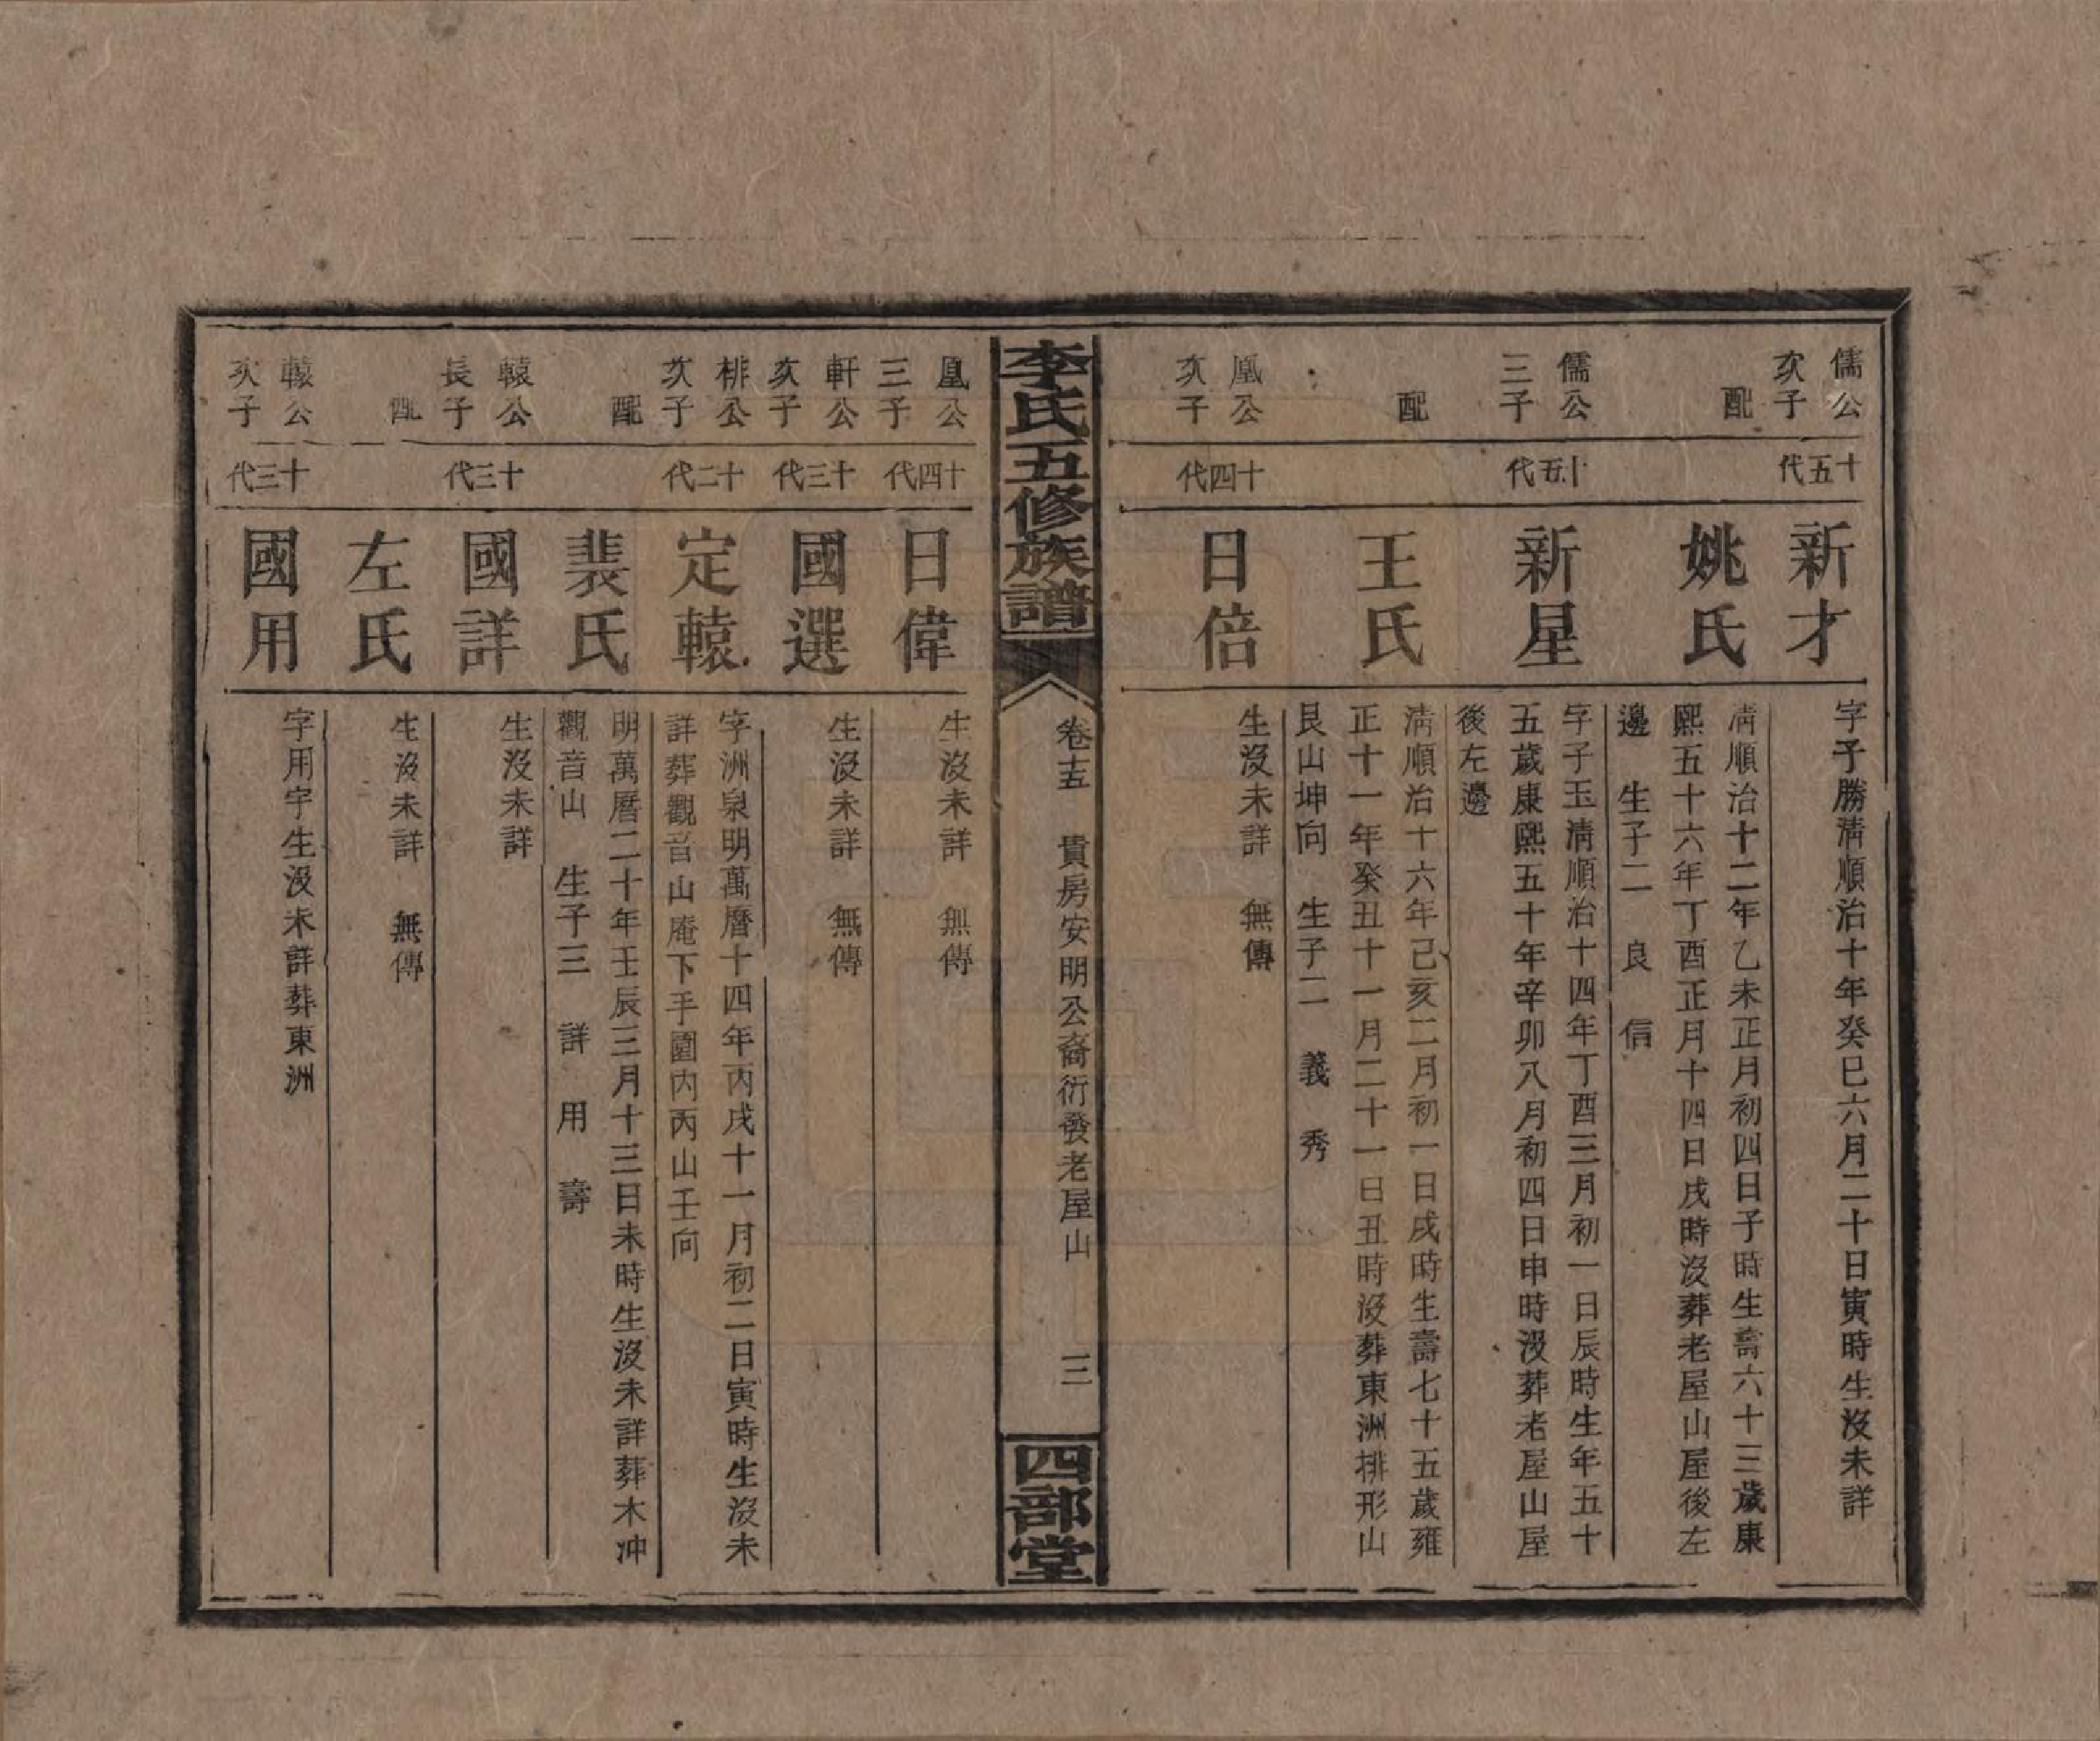 儒公
次子
十五代
新才
字子勝清順治十年癸巳六月二十日寅時生沒未詳
配
姚氏
清順治十二年乙未正月初四日子時生壽六十三歲康
熙五十六年丁酉正月十四日戌時沒葬老屋山屋後左
邊　生子二　良　信
儒公
三子
十五代
新星
字子玉清順治十四年丁酉三月初一日辰時生年五十
五歲康熙五十年辛卯八月初四日申時沒葬老屋山屋
後左邊
配
王氏
清順治十六年己亥二月初一日戌時生壽七十五歲雍
正十一年癸丑十一月二十一日丑時沒葬東洲排形山
艮山坤向　生子二　義　秀
鳳公
次子
十四代
日倍
生沒未詳　無傳
李氏五修族譜
卷十五　貴房安明公裔衍發老屋山　三
四部堂
鳳公
三子
十四代
日偉
生沒未詳　無傳
軒公
次子
十三代
國選
生沒未詳　無傳
桃公
次子
十二代
定轅
字洲泉明萬曆十四年丙戌十一月初二日寅時生沒未
詳葬觀音山庵下手園內丙山壬向
配
裴氏
明萬曆二十年壬辰三月十三日未時生沒未詳葬木冲
觀音山　生子三　詳　用　壽
轅公
長子
十三代
國詳
生沒未詳
配
左氏
生沒未詳　無傳
轅公
次子
十三代
國用
字用宇生沒未詳葬東洲